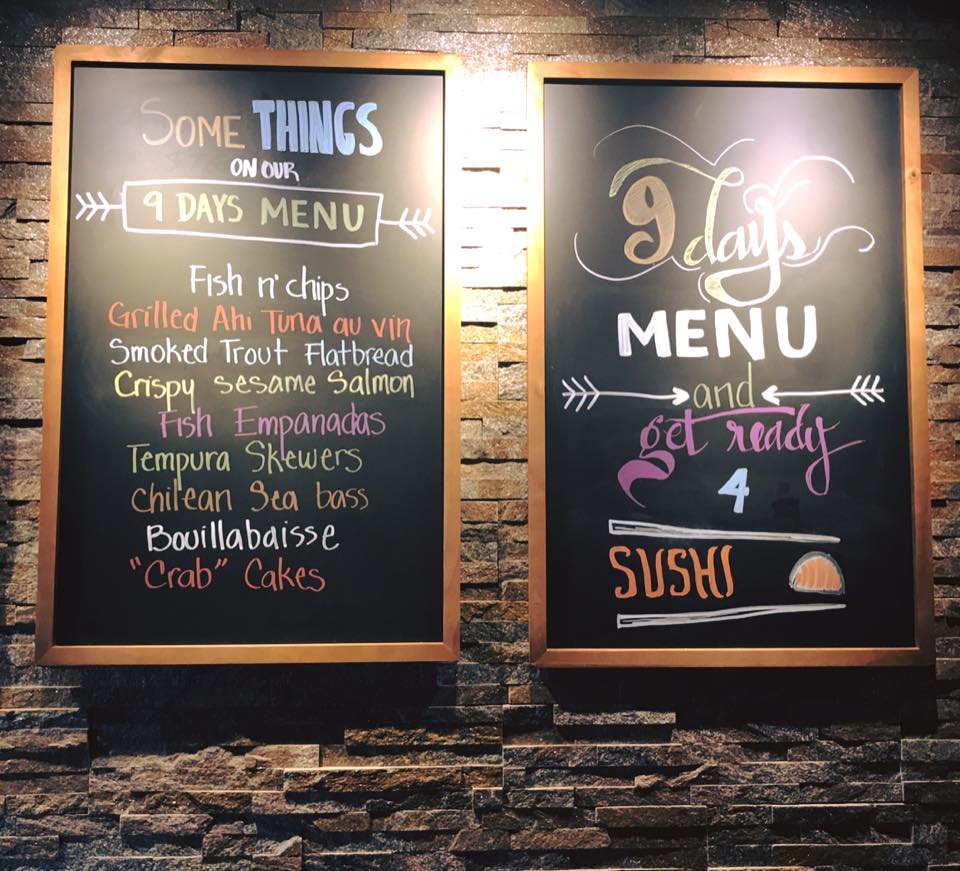 SOME THINGS
ON OUR
9 DAYS MENU
Fish n' chips
Grilled Ahi Tuna au vin
Smoked Trout Flatbread
Crispy sesame Salmon
Fish Empanadas
Tempura Skewers
Chilean Sea bass
Bouillabaisse
"Crab" Cakes
9 days
MENU
and
get ready
4
SUSHI